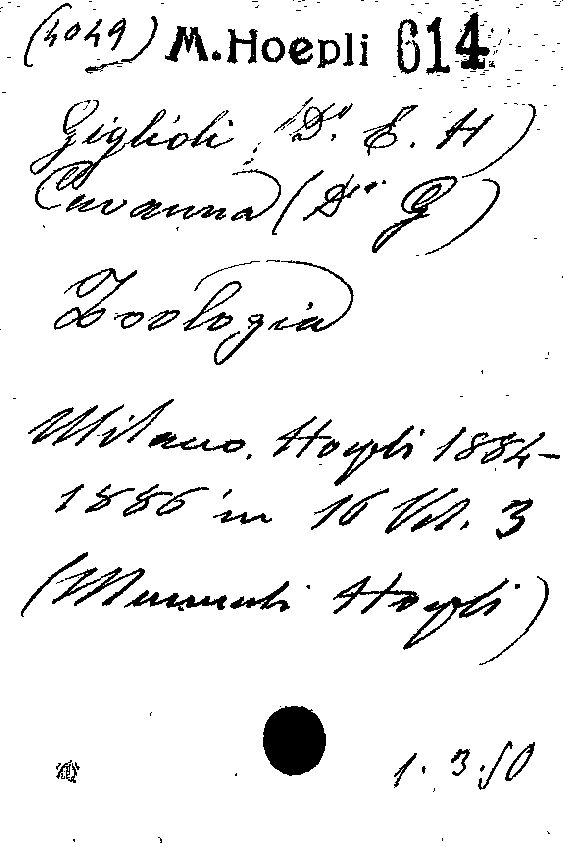 (4049) M. Hoepli 614
Giglioli (Dr. E. H)
Cavanna (Dr. G)
Zoologia
Milano, Hoepli 1884-
1886 in 16 Vol. 3
(Manuali Hoepli)
1. 3.50